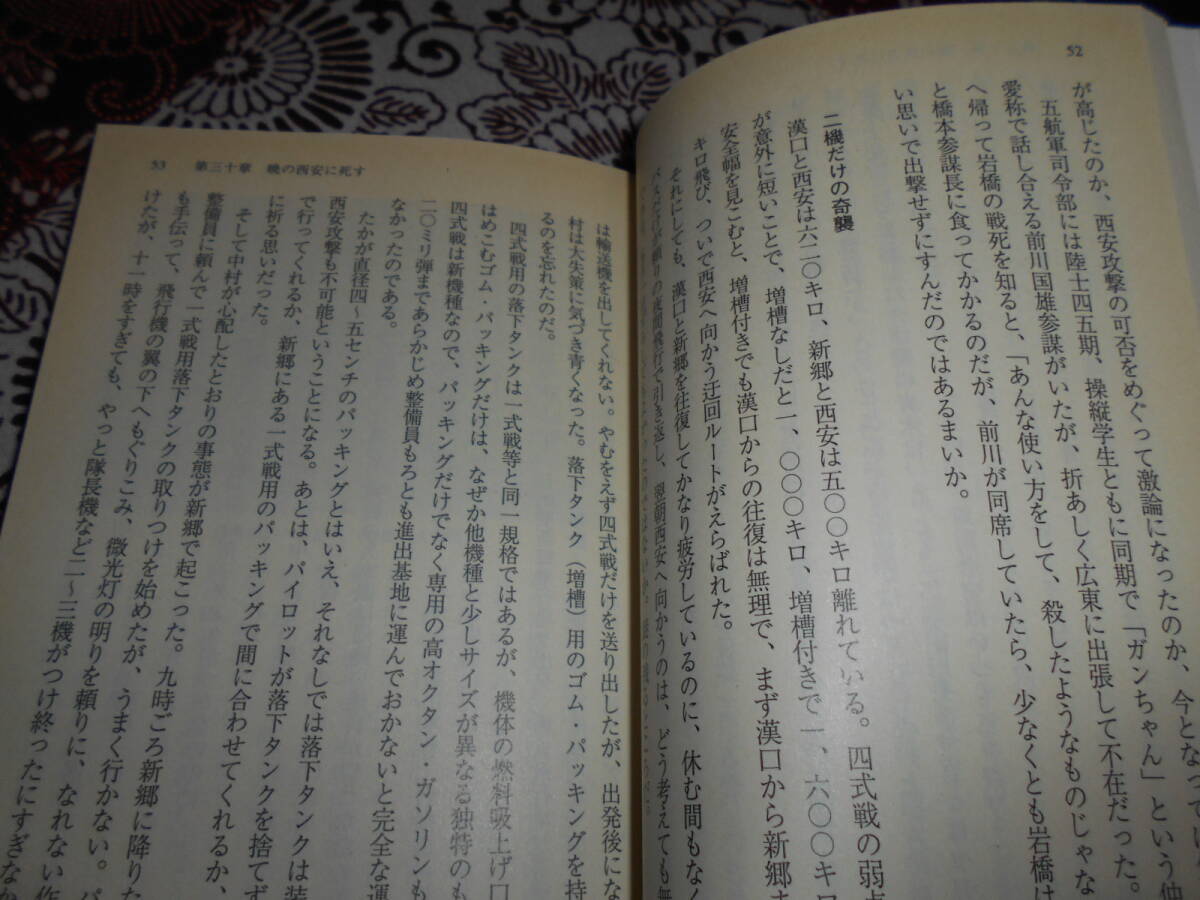 52
が高じたのか、西安攻撃の可否をめぐって激論になったのか、今となっては
五航軍司令部には陸士四五期、操縦学生ともに同期で「ガンちゃん」という仲
愛称で話し合える前川国雄参謀がいたが、折あしく広東に出張して不在だった。
へ帰って岩橋の戦死を知ると、「あんな使い方をして、殺したようなものじゃな
と橋本参謀長に食ってかかるのだが、前川が同席していたら、少なくとも岩橋は
い思いで出撃せずにすんだのではあるまいか。
二機だけの奇襲
漢口と西安は六二〇キロ、新郷と西安は五〇〇キロ離れている。四式戦の弱点
が意外に短いことで、増槽なしだと一、〇〇〇キロ、増槽付きで一、六〇〇キロ
安全幅を見こむと、増槽付きでも漢口からの往復は無理で、まず漢口から新郷ま
キロ飛び、ついで西安へ向かう迂回ルートがえらばれた。
それにしても、漢口と新郷を往復してかなり疲労しているのに、休む間もなく
頼りの夜間飛行で引き返し、翌朝西安へ向かうのは、どう考えても無
53 第三十章 暁の西安に死す
は輸送機を出してくれない。やむをえず四式戦だけを送り出したが、出発後にな
村は大失策に気づき青くなった。落下タンク（増槽）用のゴム・パッキングを持
るのを忘れたのだ。
四式戦用の落下タンクは一式戦等と同一規格ではあるが、機体の燃料吸上げ口
はめこむゴム・パッキングだけは、なぜか他機種と少しサイズが異なる独特のも
四式戦は新機種なので、パッキングだけでなく専用の高オクタン・ガソリンも
二〇ミリ弾まであらかじめ整備員もろとも進出基地に運んでおかないと完全な運
なかったのである。
たかが直径四～五センチのパッキングとはいえ、それなしでは落下タンクは装
西安攻撃も不可能ということになる。あとは、パイロットが落下タンクを捨てず
で行ってくれるか、新郷にある一式戦用のパッキングで間に合わせてくれるか、
に祈る思いだった。
そして中村が心配したとおりの事態が新郷で起こった。九時ごろ新郷に降りた
整備員に頼んで一式戦用落下タンクの取りつけを始めたが、うまく行かない。パ
も手伝って、飛行機の翼の下へもぐりこみ、微光灯の明りを頼りに、なれない作
けたが、十一時をすぎても、やっと隊長機など二～三機がつけ終ったにすぎなか